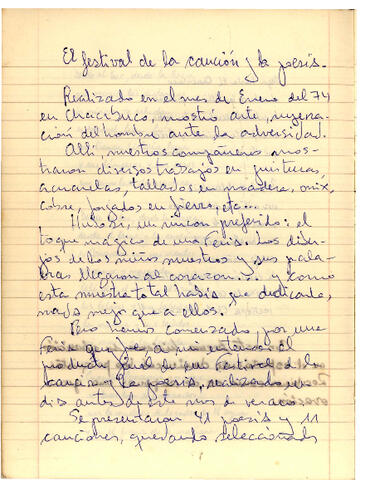 El festival de la canción y la poesía.-
Realizado en el mes de Enero del 74
en Chacabuco, mostró arte, superación
del hombre ante la adversidad.
Allí, nuestros compañeros mos-
traron diversos trabajos en pinturas,
acuarelas, tallados en madera, onix,
cobre, forjados en fierro, etc...
Hubo sí, un rincón preferido: el
toque mágico de una Feria. Los dibu-
jos de los niños nuestros y sus pala-
bras llegaron al corazón... y como
esta muestra total había que dedicarla,
nada mejor que a ellos.
Pero hemos comenzado por una
Feria que fue a no
producto final de un Festival de la
Canción y la poesía, realizado un
día antes de este mes de verano
Se presentaron 41 poesía y 11
canciones, quedando seleccionads